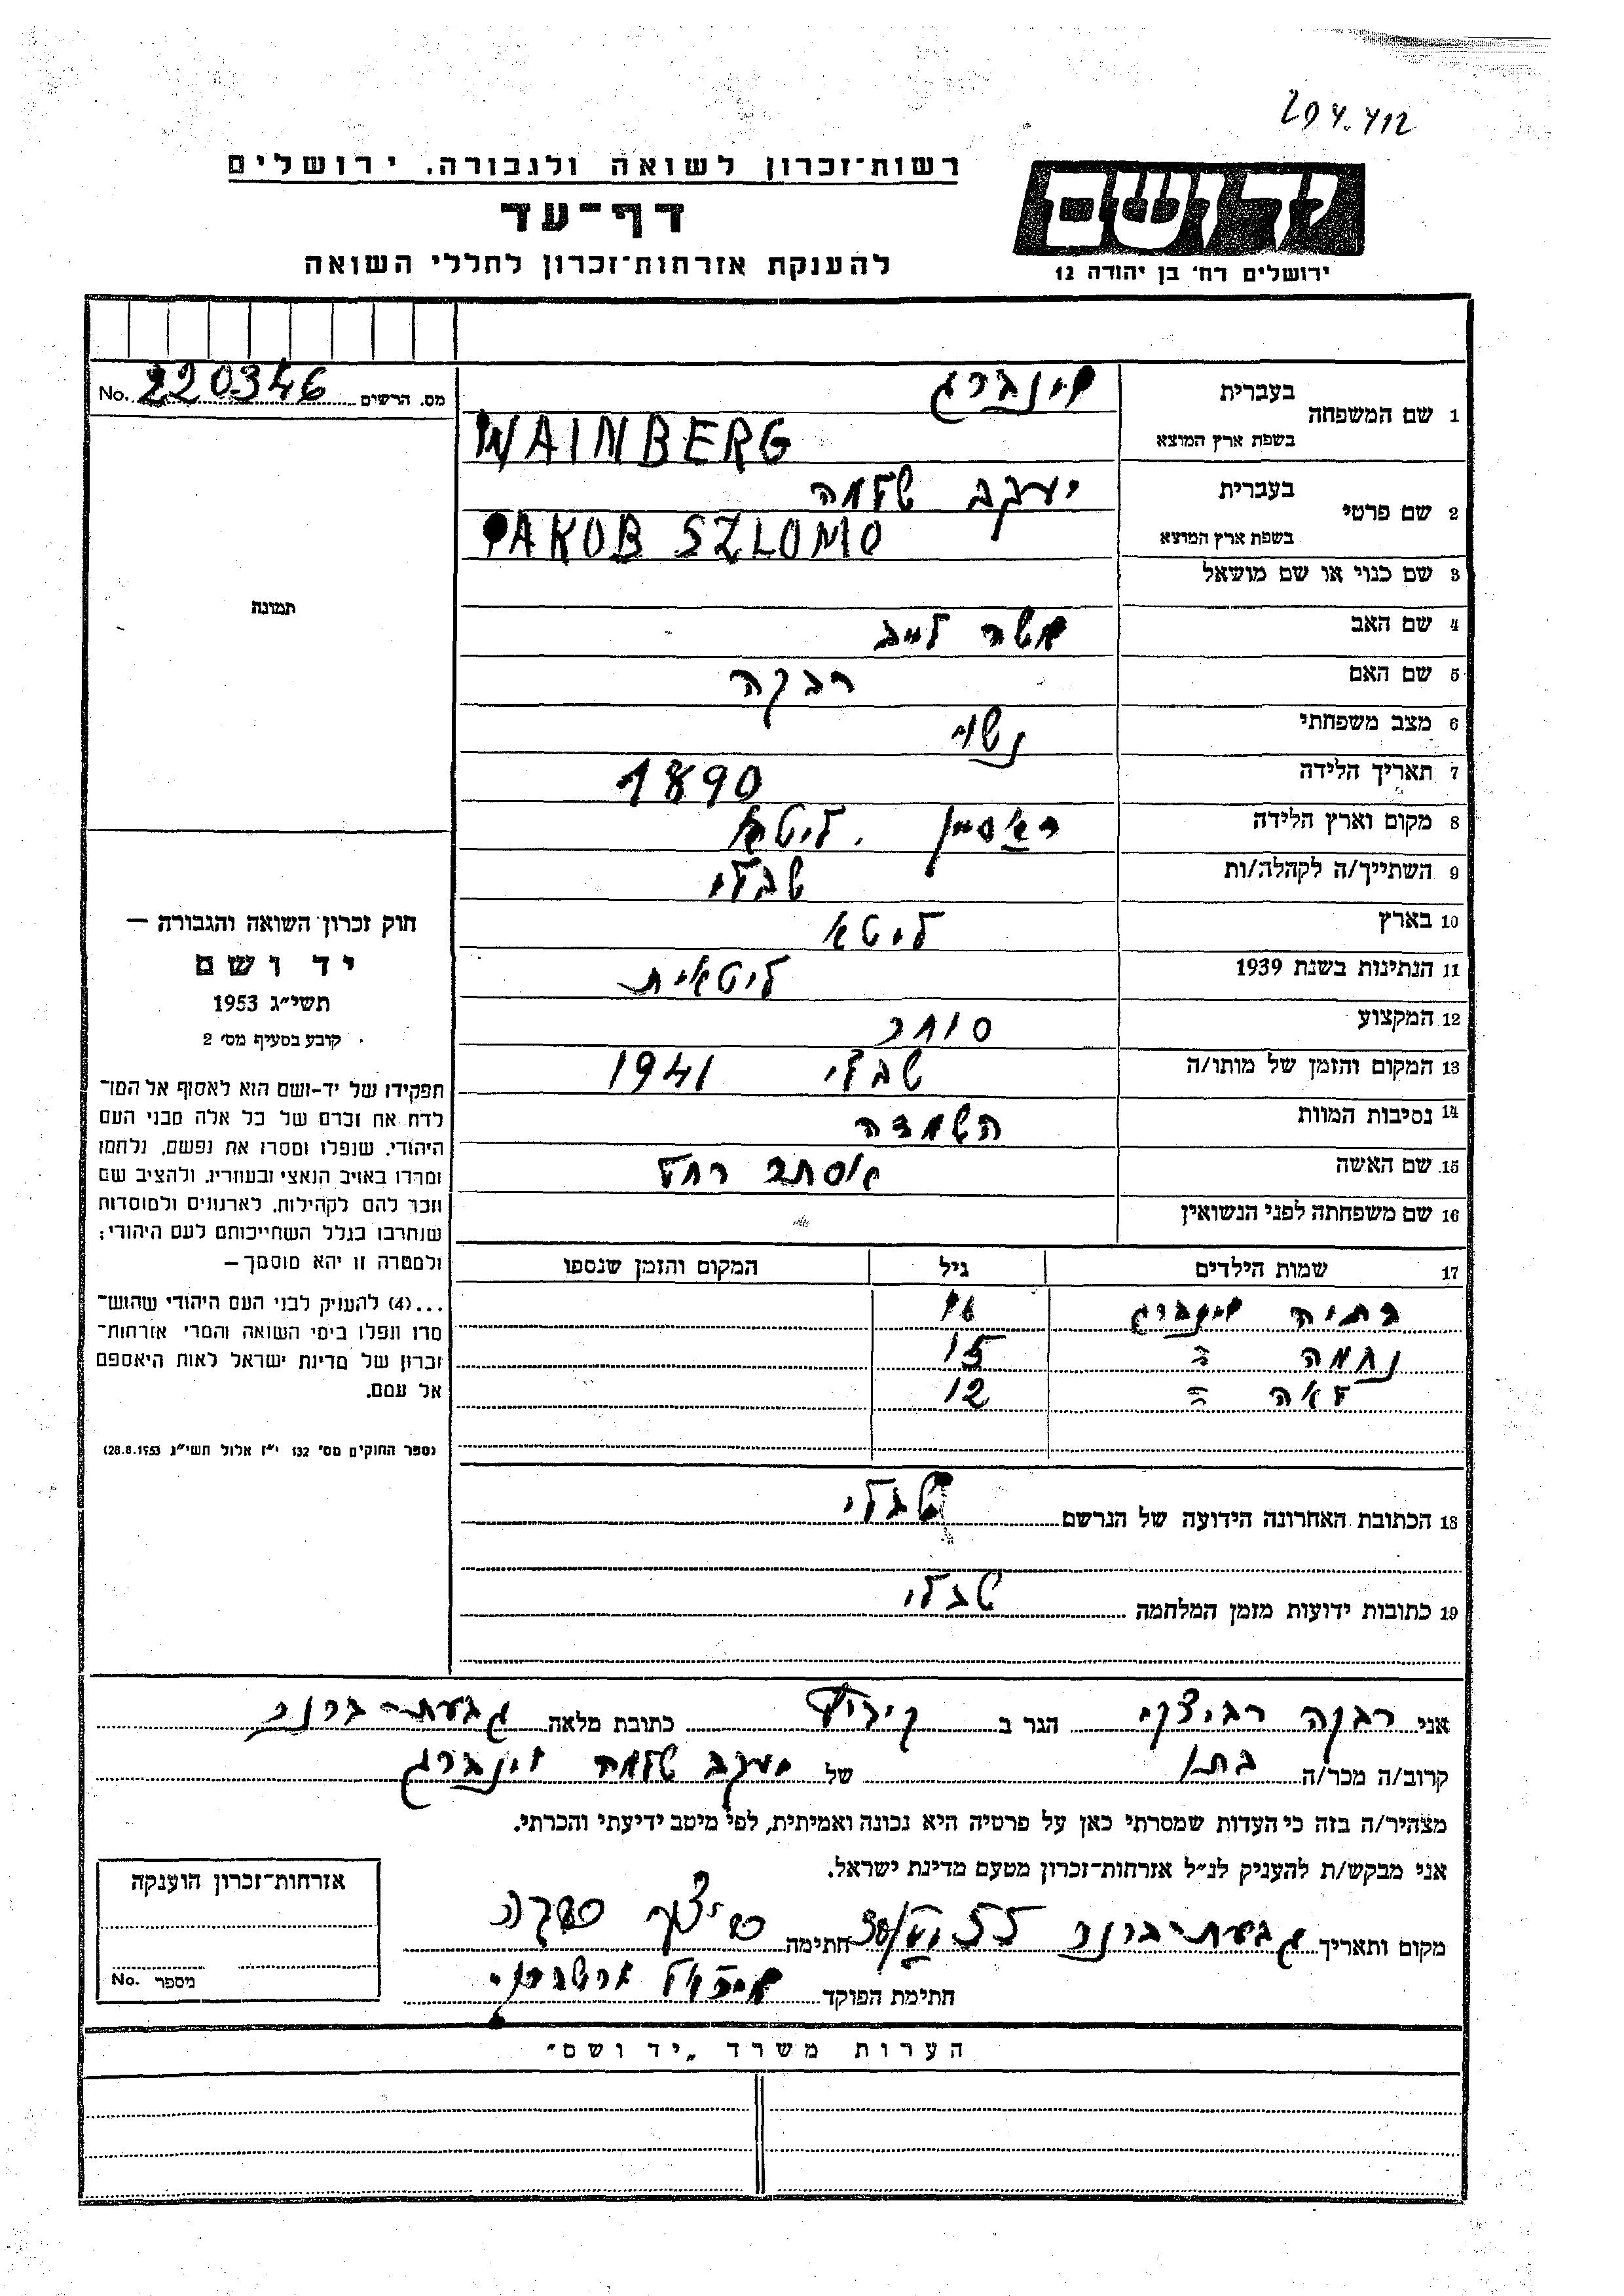 204.412
רשות־זכרון לשואה ולגבורה. ירושלים
דף־עד
להענקת אזרחות־זכרון לחללי השואה
ידושם
ירושלים רח' בן יהודה 12
מס. הרשים No. 220346
תמונה
חוק זכרון השואה והגבורה —
יד ושם
תשי״ג 1953
קובע בסעיף מס׳ 2
תפקידו של יד-ושם הוא לאסוף אל המו־
לדת את זכרם של כל אלה מבני העם
היהודי, שנפלו ומסרו את נפשם, נלחמו
ומרדו באויב הנאצי ובעוזריו, ולהציב שם
וזכר להם לקהילות, לארגונים ולמוסדות
שנחרבו בגלל השתייכותם לעם היהודי;
ולמטרה זו יהא מוסמך —
...(4) להעניק לבני העם היהודי שהוש־
מדו ונפלו בימי השואה והמרי אזרחות־
זכרון של מדינת ישראל לאות היאספם
אל עמם.
(ספר החוקים מס׳ 132 י״ז אלול תשי״ג 28.8.1953)
1 שם המשפחה בעברית וינברג
בשפת ארץ המוצא WAINBERG
2 שם פרטי בעברית יעקב שלמה
בשפת ארץ המוצא JAKOB SZLOMO
3 שם כנוי או שם מושאל
4 שם האב משה לייב
5 שם האם רבקה
6 מצב משפחתי נשוי
7 תאריך הלידה 1890
8 מקום וארץ הלידה ראסיין . ליטא
9 השתייך/ה לקהלה/ות שבלי
10 בארץ ליטא
11 הנתינות בשנת 1939 ליטאית
12 המקצוע סוחר
13 המקום והזמן של מותו/ה שבלי 1941
14 נסיבות המוות השמדה
15 שם האשה אסתר רחל
16 שם משפחתה לפני הנשואין
17 שמות הילדים גיל המקום והזמן שנספו
בתיה וינברג
נחמה " 15
לאה " 12
18 הכתובת האחרונה הידועה של הנרשם שבלי
19 כתובות ידועות מזמן המלחמה שבלי
אני רבקה רביצקי הגר ב קיבוץ כתובת מלאה גבעת-ברנר
קרוב/ה מכר/ה בתו של יעקב שלמה וינברג
מצהיר/ה בזה כי העדות שמסרתי כאן על פרטיה היא נכונה ואמיתית, לפי מיטב ידיעתי והכרתי.
אני מבקש/ת להעניק לנ״ל אזרחות־זכרון מטעם מדינת ישראל.
מקום ותאריך גבעת-ברנר חתימה
חתימת הפוקד
אזרחות־זכרון הוענקה
מספר No.
הערות משרד „יד ושם״